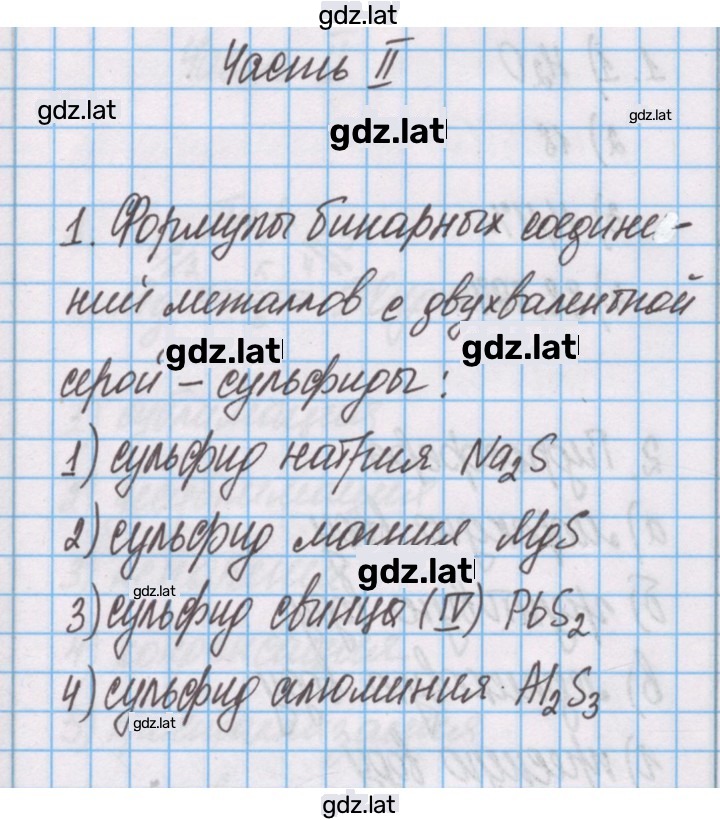 gdz.lat
Часть II
gdz.lat
gdz.lat
gdz.lat
1. Формулы бинарных соедине-
ний металлов с двухвалентной
gdz.lat
gdz.lat
серой – сульфиды:
1) сульфид натрия Na₂S
2) сульфид магния MgS
gdz.lat
gdz.lat
3) сульфид свинца (IV) PbS₂
4) сульфид алюминия Al₂S₃
gdz.lat
gdz.lat